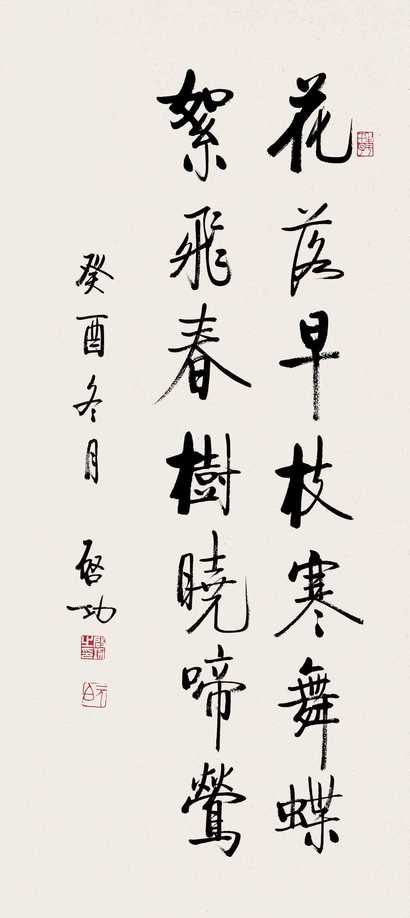 花落早枝寒舞蝶
絮飛春樹曉啼鶯
癸酉冬月 啓功